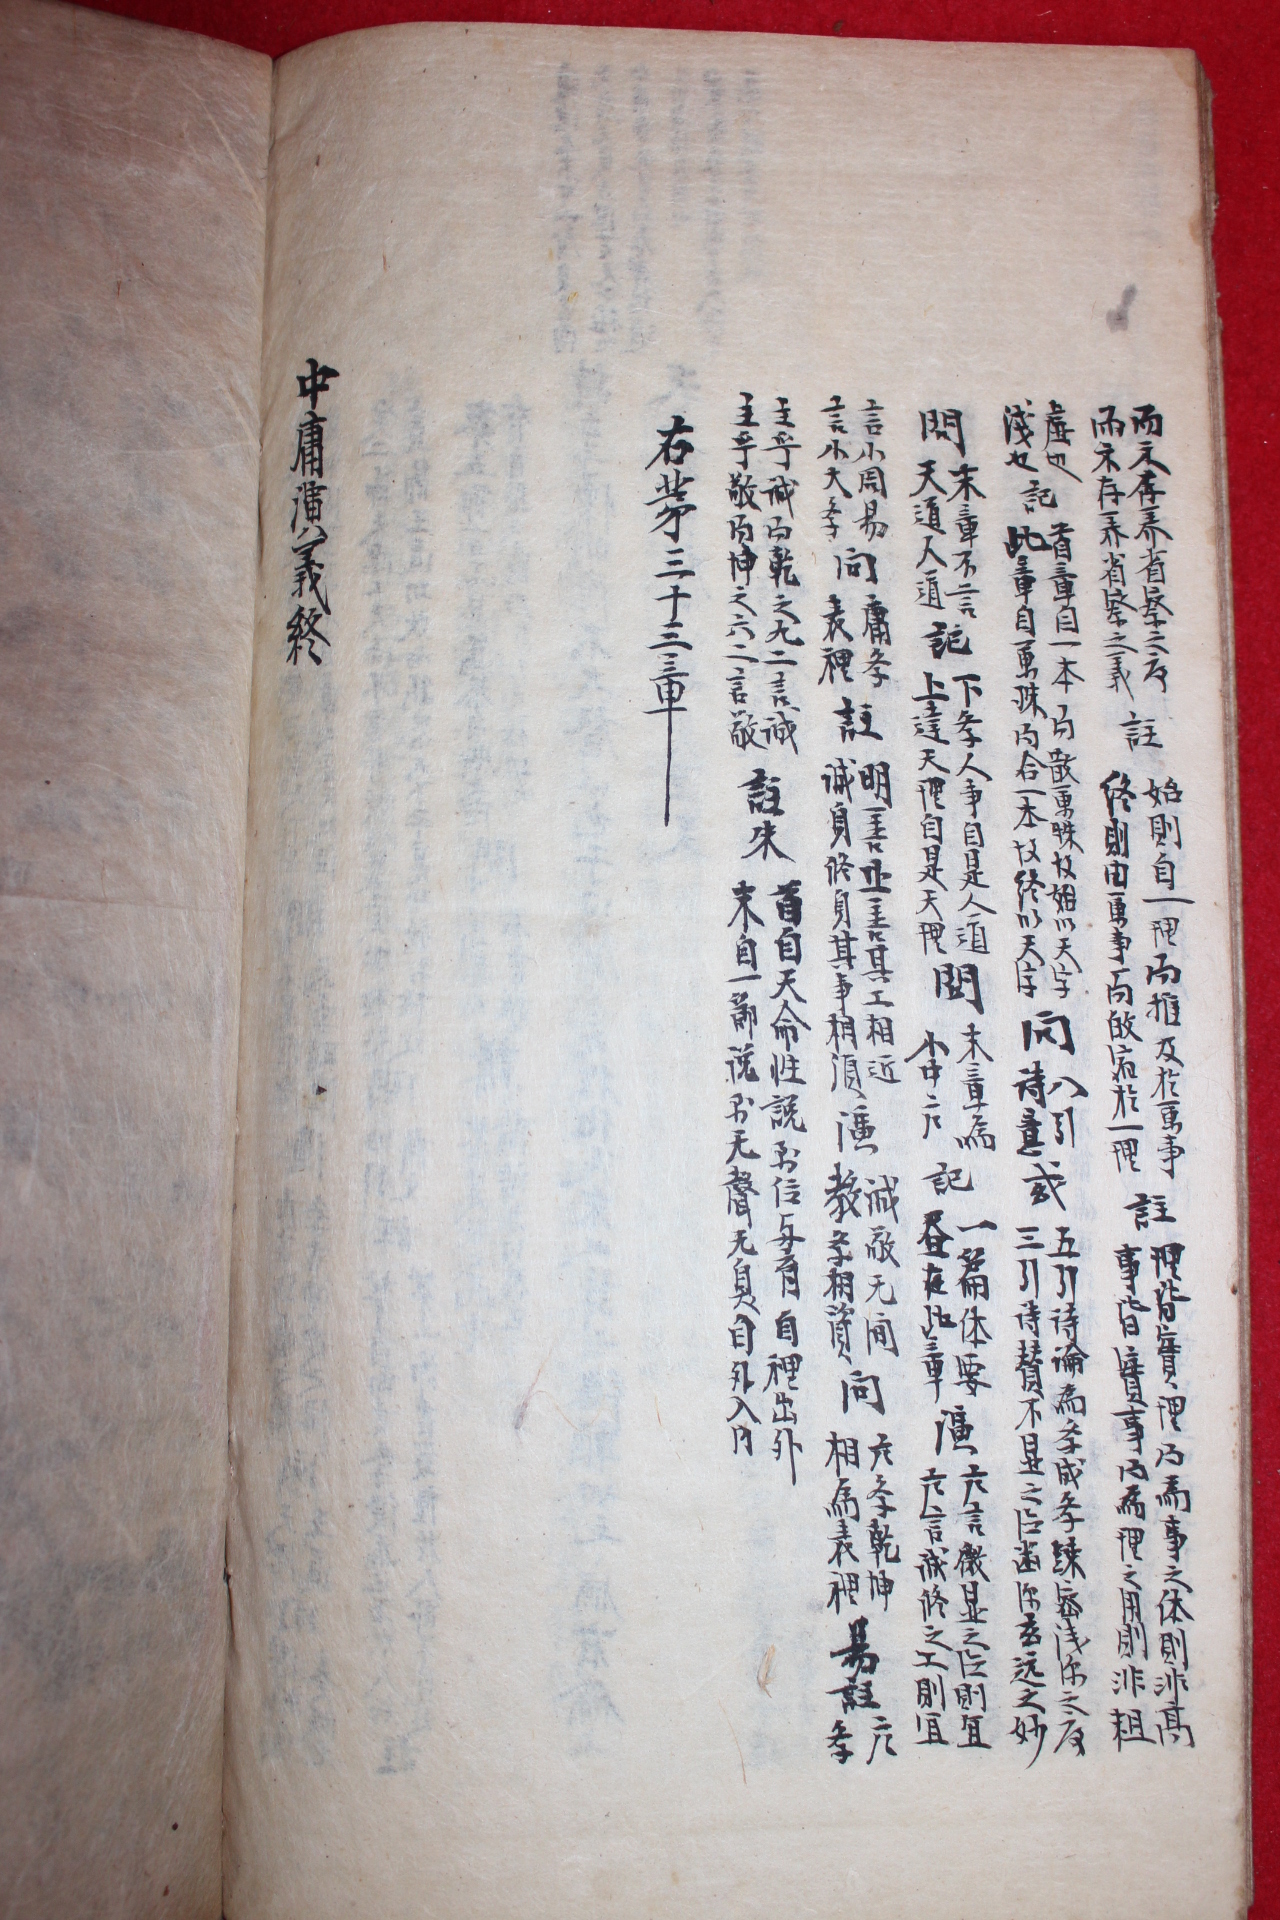 而不存养省察之反
而不存养省察之義
註
始則自一理而推及於萬事
終則由萬事而斂宿於一理
註
理皆實理而為事之体則非高
事皆實事而為理之用則非粗
虛也
淺也
記
首章自一本而散萬殊故始以天字
此章自萬殊而合一本故終以天字
問
八引
詩意
或
五引詩論為斈成斈疎密浅深之序
三引詩賛不显之德 深玄远之妙
問
末章不言
天道人道
記
下斈人事自是人道
上達天理自是天理
問
末章為
小中庸
記
一篇体要
皆在此章
演
庸言微显之德則宜
庸言誠修之工則宜
言小周易
言小大斈
問
庸斈
表裡
註
明善止善其工相近
誠身修身其事相須
演
誠敬无间
教斈相資
問
庸斈乾坤
相為表裡
易註
庸
斈
主乎誠而乾之九二言誠
主乎敬而坤之六二言敬
註朱
首自天命性說到位与育自裡出外
末自一節說到无聲无臭自外入内
右苐三十三章
中庸演義終